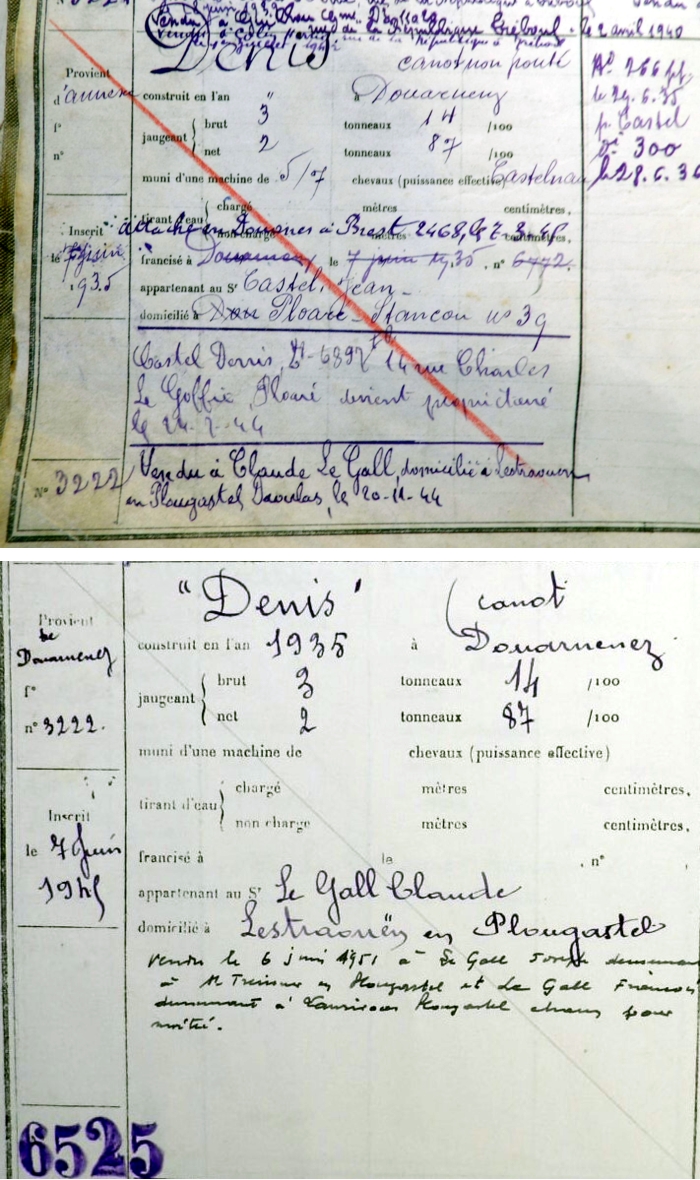 Vendu à
le 2 avril 1940
Denis canot non ponté
Provient d'annexe construit en l'an " à Douarnenez
f° jaugeant brut 3 tonneaux 14 /100
n° net 2 tonneaux 87 /100
muni d'une machine de 5/7 chevaux (puissance effective) Castelnau
tirant d'eau chargé mètres centimètres,
non chargé mètres centimètres,
attaché en Douanes à Brest 2468, le 7.3.45
Inscrit le 7 juin 1935
francisé à Douarnenez, le 7 juin 1935, n° 6472.
appartenant au Sr Castel Jean
domicilié à Dou Ploaré Stancou n° 39
Castel Denis, 6897 14 rue Charles
Le Goffic, Ploaré devient propriétaire
le 24-2-44
Vendu à Claude Le Gall, domicilié à Lestraouen
en Plougastel Daoulas, le 20-11-44
N° 3222
266
le 29.6.35
p. Castel
300
le 28.6.36
"Denis" (canot
Provient de Douarnenez construit en l'an 1935 à Douarnenez
f° jaugeant brut 3 tonneaux 14 /100
n° 3222. net 2 tonneaux 87 /100
muni d'une machine de chevaux (puissance effective)
tirant d'eau chargé mètres centimètres,
non chargé mètres centimètres,
Inscrit le 7 Juin 1945
francisé à le , n°
appartenant au Sr Le Gall Claude
domicilié à Lestraouën en Plougastel
Vendu le 6 juin 1951 à Le Gall Joseph demeurant
à Plougastel et Le Gall François
demeurant à Plougastel chacun pour
moitié.
6525